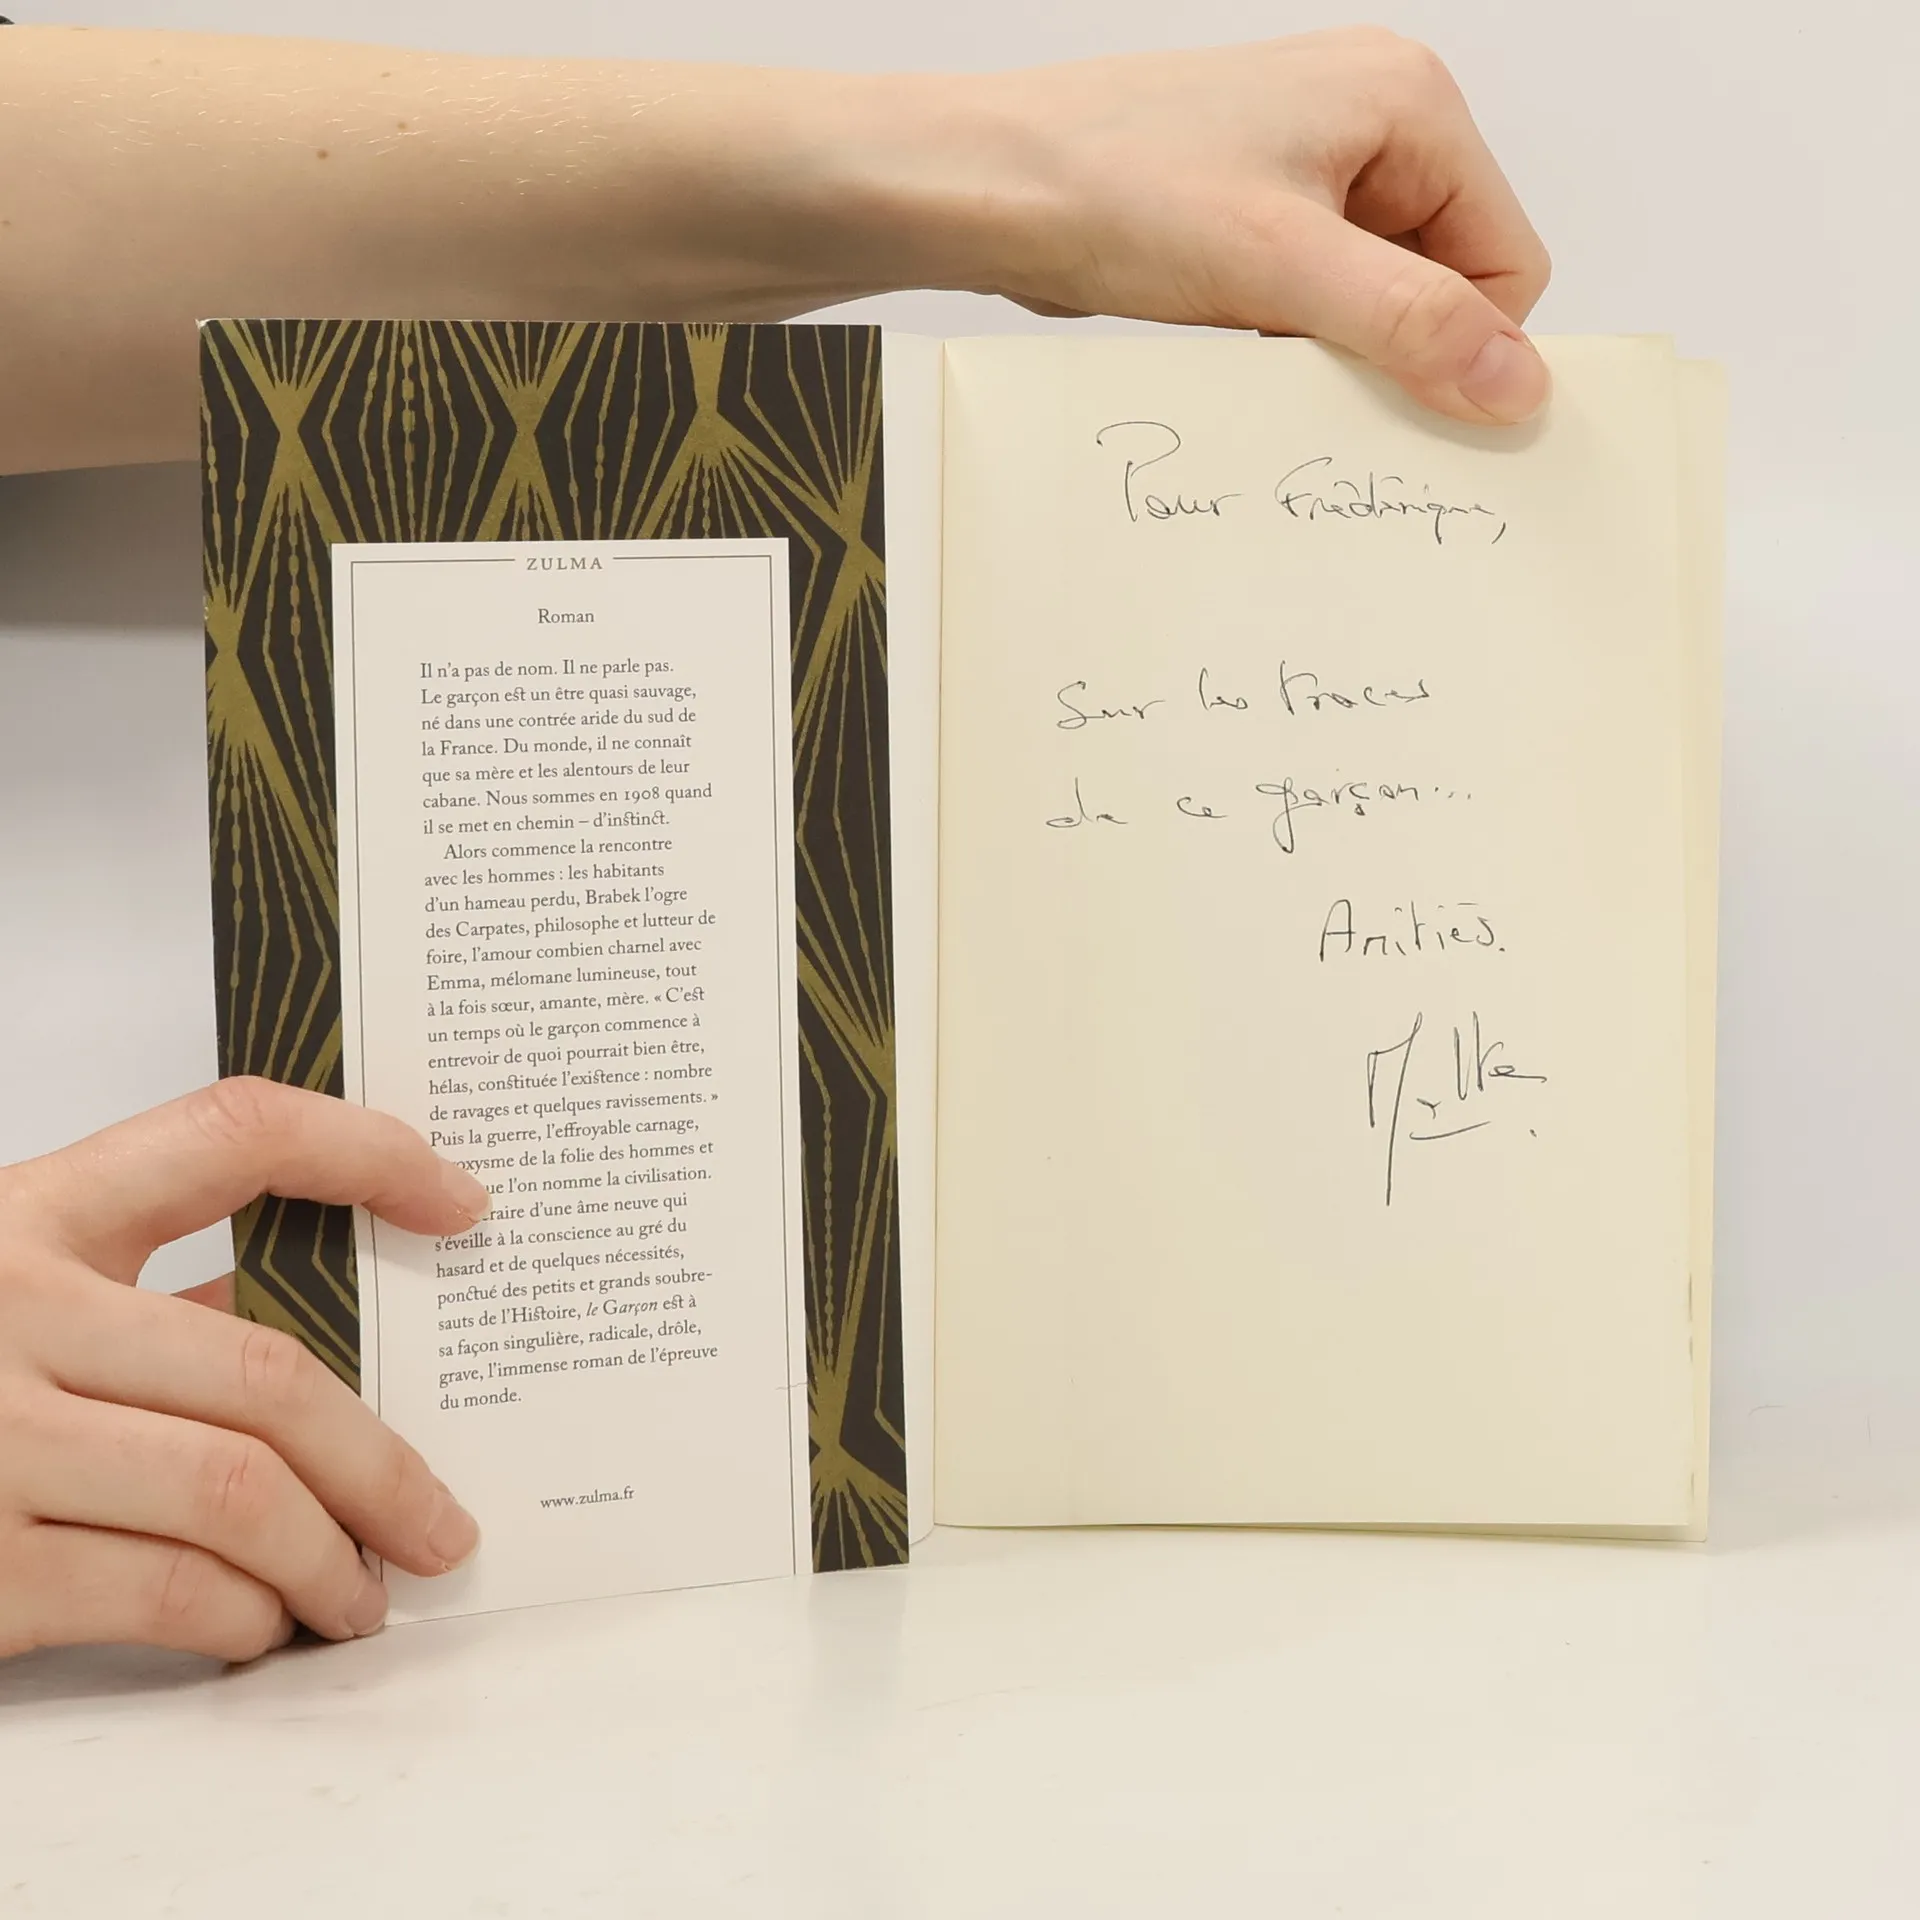 ZULMA
Roman
Il n'a pas de nom. Il ne parle pas.
Le garçon est un être quasi sauvage,
né dans une contrée aride du sud de
la France. Du monde, il ne connaît
que sa mère et les alentours de leur
cabane. Nous sommes en 1908 quand
il se met en chemin – d'instinct.
Alors commence la rencontre
avec les hommes : les habitants
d'un hameau perdu, Brabek l'ogre
des Carpates, philosophe et lutteur de
foire, l'amour combien charnel avec
Emma, mélomane lumineuse, tout
à la fois sœur, amante, mère. « C'est
un temps où le garçon commence à
entrevoir de quoi pourrait bien être,
hélas, constituée l'existence : nombre
de ravages et quelques ravissements. »
Puis la guerre, l'effroyable carnage,
oxysme de la folie des hommes et
ue l'on nomme la civilisation.
raire d'une âme neuve qui
s'éveille à la conscience au gré du
hasard et de quelques nécessités,
ponctué des petits et grands soubre-
sauts de l'Histoire, le Garçon est à
sa façon singulière, radicale, drôle,
grave, l'immense roman de l'épreuve
du monde.
www.zulma.fr
Pour Frédérique,
Sur les traces
de ce garçon...
Amitiés.